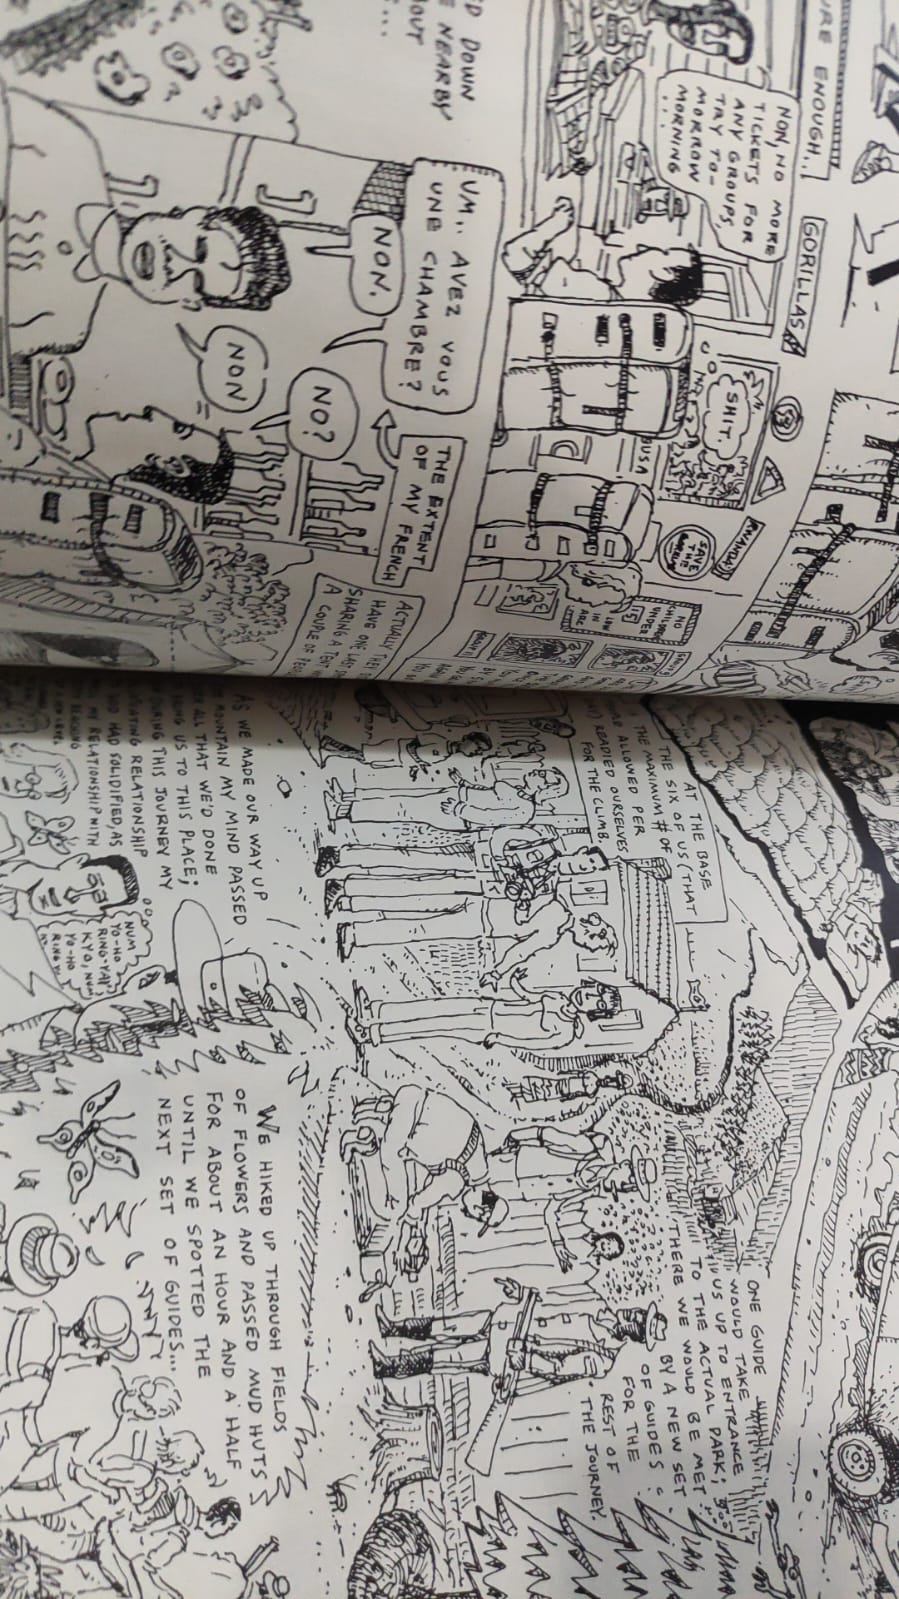 URE ENOUGH...
NON, NO MORE
TICKETS FOR
ANY GROUPS,
TRY TO-
MORROW
MORNING
...
GORILLAS
SHIT.
BUSA
RWANDA
SAVE
THE
NO
CHILDREN
UNDER
15
ARE
D DOWN
E NEARBY
OUT
...
UM.. AVEZ VOUS
UNE CHAMBRE?
THE EXTENT
OF MY FRENCH
NON.
NO?
NON
ACTUALLY THEY
HAVE ONE LAST
SHARING A TENT
A COUPLE OF
AT THE BASE
THE SIX OF US (THAT
THE MAXIMUM # OF
ALLOWED PER
READIED OURSELVES
FOR THE CLIMB.
ONE GUIDE
WOULD TAKE
US UP TO ENTRANCE
TO THE ACTUAL PARK;
THERE WE WOULD BE MET
BY A NEW SET
OF GUIDES
FOR THE
REST OF
THE JOURNEY.
AS WE MADE OUR WAY UP
MOUNTAIN MY MIND PASSED
ALL THAT WE'D DONE
US TO THIS PLACE;
THIS JOURNEY MY
RELATIONSHIP
HAD SOLIDIFIED, AS
MY RELATIONSHIP WITH
NUM
YO-HO
RING-YAY
KYO, NUM
YO-HO
WE HIKED UP THROUGH FIELDS
OF FLOWERS AND PASSED MUD HUTS
FOR ABOUT AN HOUR AND A HALF
UNTIL WE SPOTTED THE
NEXT SET OF GUIDES...